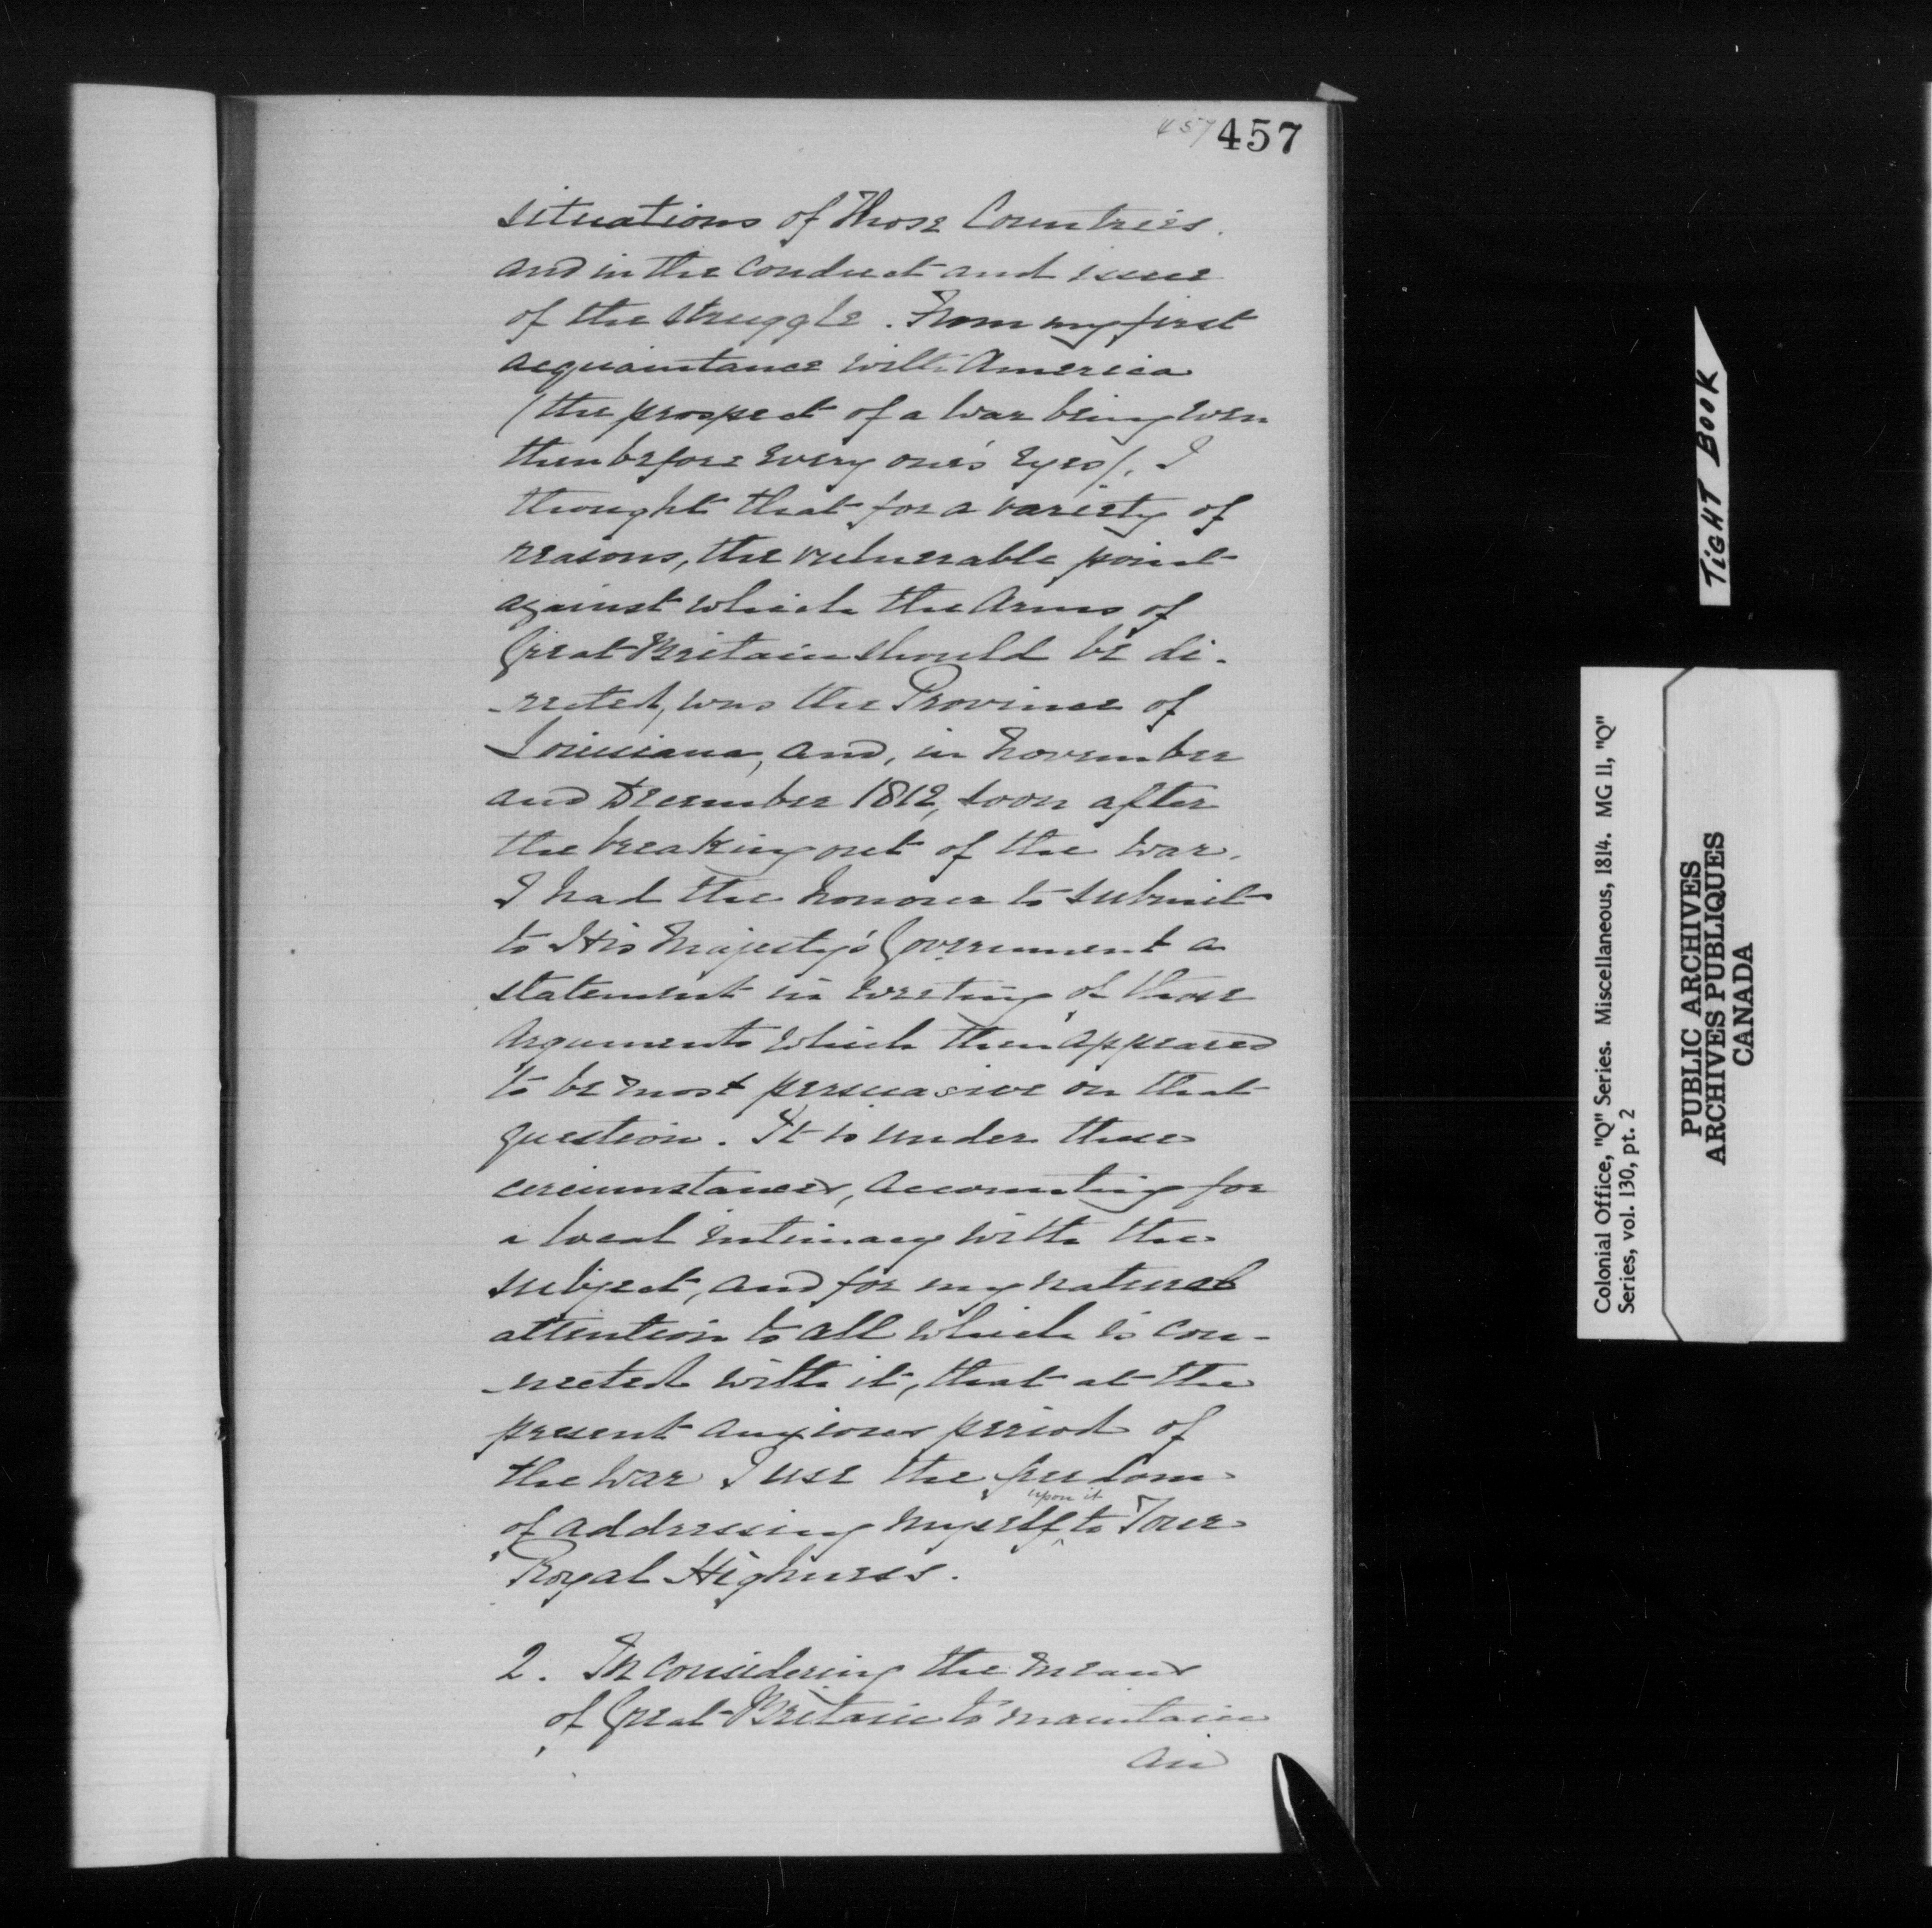 457 457
situations of those Countries.
and in the conduct and issue
of the struggle. From my first
acquaintance with America
(the prospect of a war being even
then before every one's eyes/. I
thought that for a variety of
reasons, the vulnerable point
against which the Arms of
Great Britain should be di-
-rected, was the Province of
Louisiana, and, in November
and December 1812, soon after
the breaking out of the war.
I had the honour to submit
to His Majesty's Government a
statement in writing of those
Arguments which then appeared
to be most persuasive on that
question. It is under these
circumstances, accounting for
a local intimacy with the
subject, and for my natural
attention to all which is con-
-nected with it, that at the
present anxious period of
the war I use the freedom
upon it
of addressing myself, to Your
Royal Highness.
2. In considering the means
of Great Britain to maintain
an
TIGHT BOOK
Colonial Office, "Q" Series. Miscellaneous, 1814. MG 11, "Q"
Series, vol. 130, pt. 2
PUBLIC ARCHIVES
ARCHIVES PUBLIQUES
CANADA